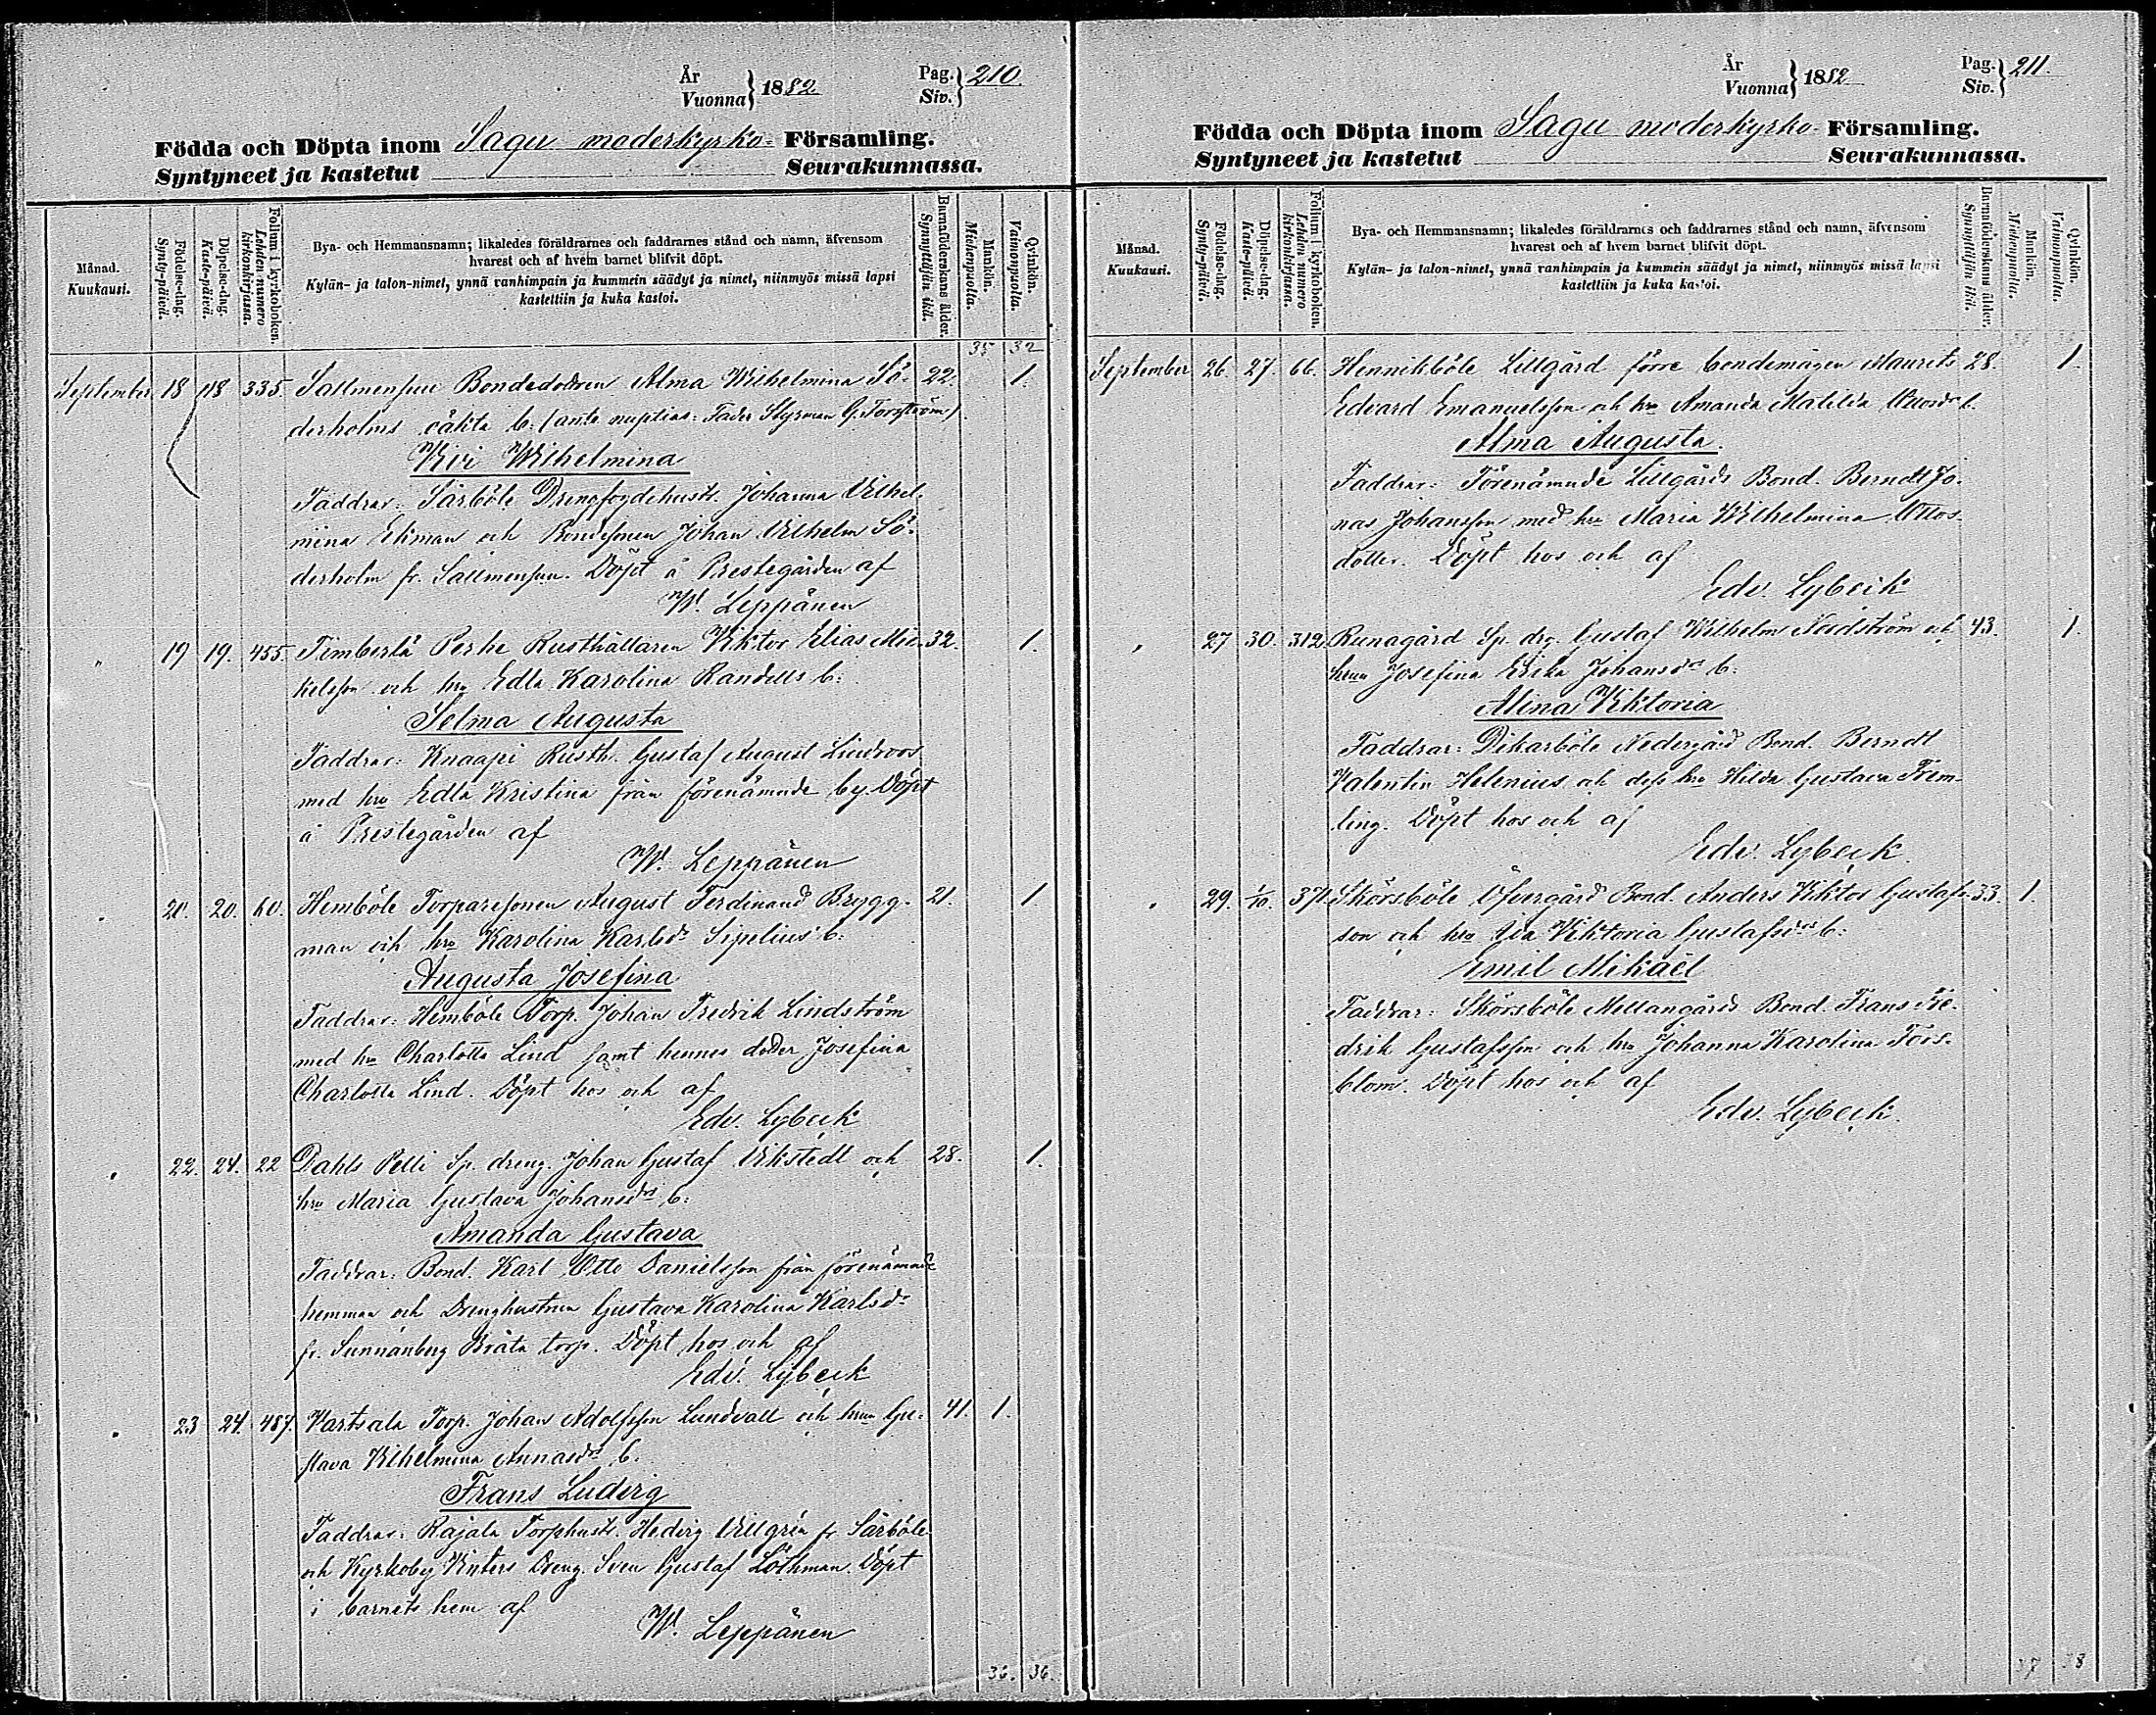 År
Vuonna } 1882
Pag.
Siv. } 210
Födda och Döpta inom Sagu moderkyrko- Församling.
Syntyneet ja kastetut Seurakunnassa.
Månad.
Kuukausi.
Födelse-dag.
Synty-päivä.
Döpelse-dag.
Kaste-päivä.
Folium i kyrkoboken.
Lehden numero kirkonkirjassa.
Bya- och Hemmansnamn; likaledes föräldrarnes och faddrarnes stånd och namn, äfvensom
hvarest och af hvem barnet blifvit döpt.
Kylän- ja talon-nimet, ynnä vanhimpain ja kummein säädyt ja nimet, niinmyös missä lapsi
kastettiin ja kuka kastoi.
Barnaföderskans ålder.
Synnyttäjän ikä.
Mankön.
Miehenpuolta.
Qvinkön.
Vaimonpuolta.
35 32
September 18 18 335. Sallmensuu Bondedottren Alma Wilhelmina Sö- 22. 1.
derholms oäkta b: (ante nuptias: Fader Styrman G. Torström)
Wivi Wilhelmina
Faddrar: Särböle Drengfogdehustr. Johanna Vilhel-
mina Ekman och Bondesonen Johan Vilhelm Sö-
derholm fr. Sallmensuu. Döpt å Prestegården af
W. Leppänen
" 19 19. 455. Timberlä Perhe Rusthållaren Viktor Elias Mi- 32. 1.
kelsson och hru Edla Karolina Randells b:
Selma Augusta
Faddrar: Knaapi Rusth. Gustaf August Lindroos
med hru Edla Kristina från förenämnde by. Döpt
å Prestegården af
W. Leppänen
" 20. 20. 60. Hemböle Torparesonen August Ferdinand Brygg- 21. 1
man och hru Karolina Karlsdr Sipelius b:
Augusta Josefina
Faddrar: Hemböle Torp. Johan Fredrik Lindström
med hru Charlotta Lind samt hennes dotter Josefina
Charlotta Lind. Döpt hos och af
Edv. Lybeck
" 22. 24. 22 Dahls Pelli Sp. dreng. Johan Gustaf Vikstedt och 28. 1.
hru Maria Gustava Johansdrs b:
Amanda Gustava
Faddrar: Bond. Karl Otto Danielsson från förenämnde
hemman och Drenghustrun Gustava Karolina Karlsdr
fr. Sunnanberg Bråta torp. Döpt hos och af
Edv. Lybeck
" 23 24. 487. Vartsala Torp. Johan Adolfsson Lundvall och hrun Gu- 41. 1.
stava Vilhelmina Annasdrs b.
Frans Ludvig
Faddrar: Rajala Torphustr. Hedvig Villgrén fr Särböle
och Kyrkoby Vinters Dreng. Sven Gustaf Löthman. Döpt
i barnets hem af
W. Leppänen
36. 36.
År
Vuonna } 1882
Pag.
Siv. } 211.
Födda och Döpta inom Sagu moderkyrko- Församling.
Syntyneet ja kastetut Seurakunnassa.
Månad.
Kuukausi.
Födelse-dag.
Synty-päivä.
Döpelse-dag.
Kaste-päivä.
Folium i kyrkoboken.
Lehden numero kirkonkirjassa.
Bya- och Hemmansnamn; likaledes föräldrarnes och faddrarnes stånd och namn, äfvensom
hvarest och af hvem barnet blifvit döpt.
Kylän- ja talon-nimet, ynnä vanhimpain ja kummein säädyt ja nimet, niinmyös missä lapsi
kastettiin ja kuka kastoi.
Barnaföderskans ålder.
Synnyttäjän ikä.
Mankön.
Miehenpuolta.
Qvinkön.
Vaimonpuolta.
September 26. 27. 66. Hennikböle Lillgård förre bondemågen Maurits 28. 1.
Edvard Emanuelsson och hru Amanda Matilda b.
Alma Augusta.
Faddrar: Förenämnde Lillgårds Bond. Berndt Jo-
nas Johansson med hru Maria Wilhelmina Ottos-
dotter. Döpt hos och af
Edv. Lybeck
" 27 30. 312. Runagård Sp. drg. Gustaf Wilhelm Nordström och 43. 1.
hrun Josefina Erika Johansdrs b:
Alina Viktoria
Faddrar: Dikarböle Nedergård Bond. Berndt
Valentin Helenius och dess hru Hilda Gustava Frem-
ling. Döpt hos och af
Edv. Lybeck.
" 29. 1/10. 371. Skörsböle Öfvergård Bond. Anders Viktor Gustafs- 33. 1.
son och hru Ida Viktoria Gustafsdrs b:
Emil Mikael
Faddrar: Skörsböle Mellangårds Bond. Frans Fre-
drik Gustafsson och hru Johanna Karolina Fors-
blom. Döpt hos och af
Edv. Lybeck.
37